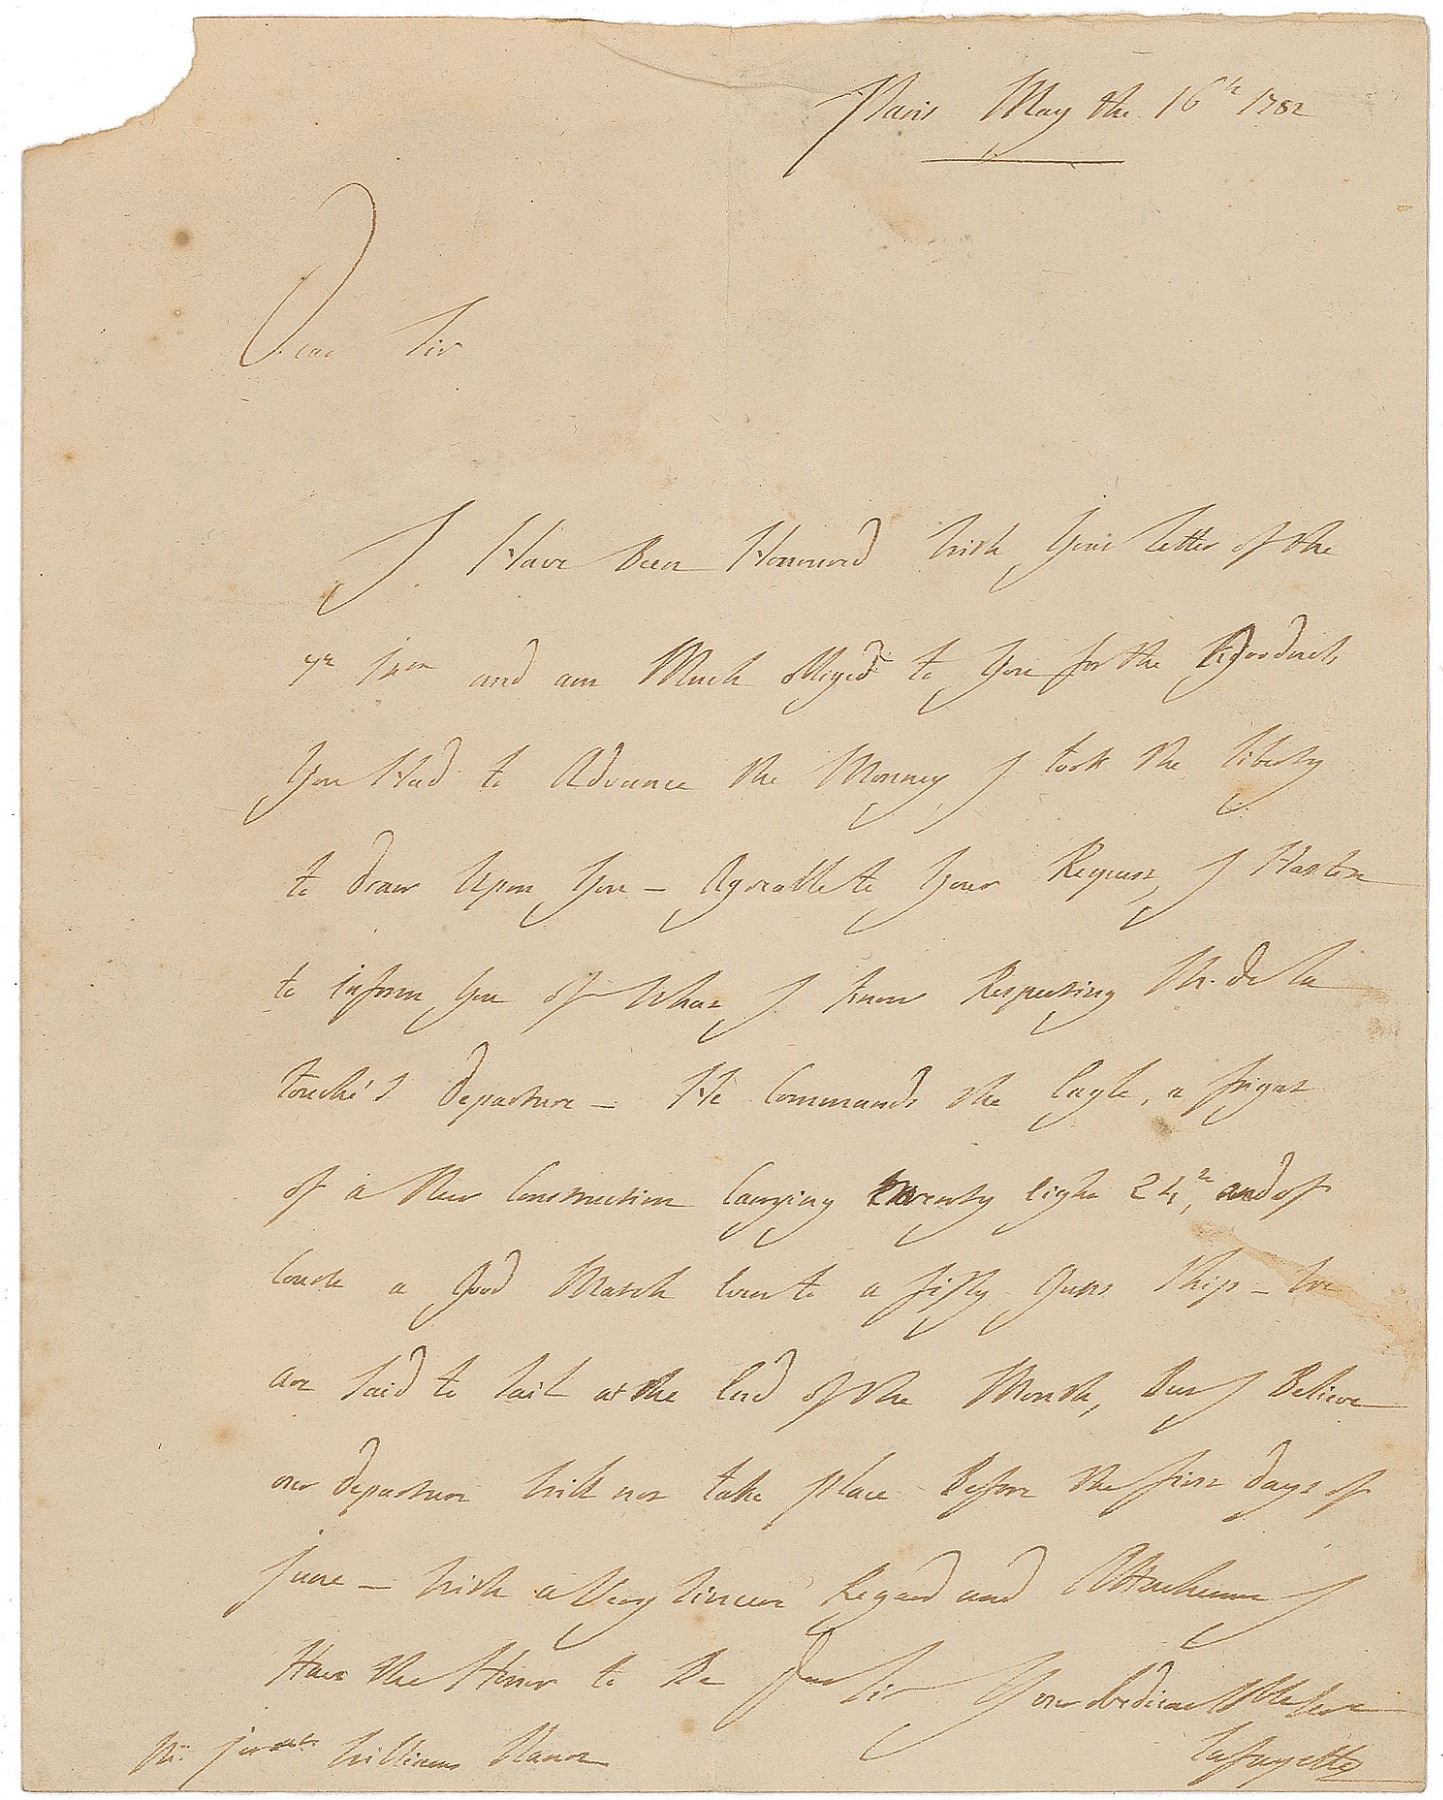 Paris May the 16th 1782
Dear Sir
I Have Been Honnored With Your letter of the
and am Much obliged to You for the Goodness
You Had to Advance the Monney I took the liberty
to draw Upon You — Agreable to Your Request, I Hasten
to inform You of What I know Respecting Mr. de la
touche's departure — He Commands the Eagle, a frigat
of a New Construction Carrying twenty eight 24rs, and of
Course a Good Match even to a fifty Guns Ship — We
are Said to Sail at the End of the Month, But I Believe
our departure Will not take place Before the first days of
june — With a Very Sincere Regard and Attachement I
Have the Honor to Be Dear Sir Your obedient Hble Servt
Lafayette
Mr. Williams Nantz